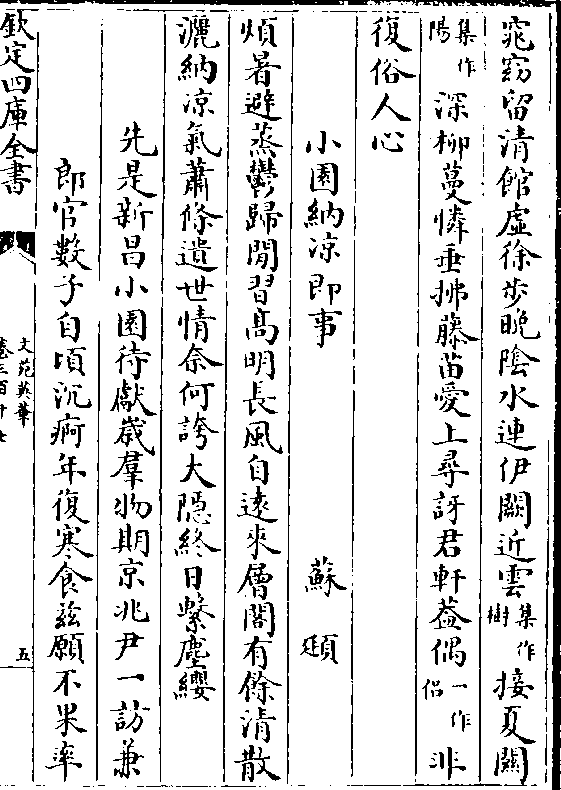 窕窈留清館虚徐步晚隂水連伊闕近雲集作樹接夏闗
集作陽深柳蔓憐垂拂藤苗愛上尋訝君軒葢偶一作侶非
復俗人心
小園納凉即事　蘇頲
煩暑避蒸鬱歸閒習髙明長風自逺來層閣有餘清散
灑納凉氣蕭條遺世情奈何誇大隠終日繫塵纓
先是新昌小園待獻嵗羣物期京兆尹一訪兼
郎官數子自頃沉痾年復寒食兹願不果率
欽定四庫全書
文苑英華
卷三百十七
五